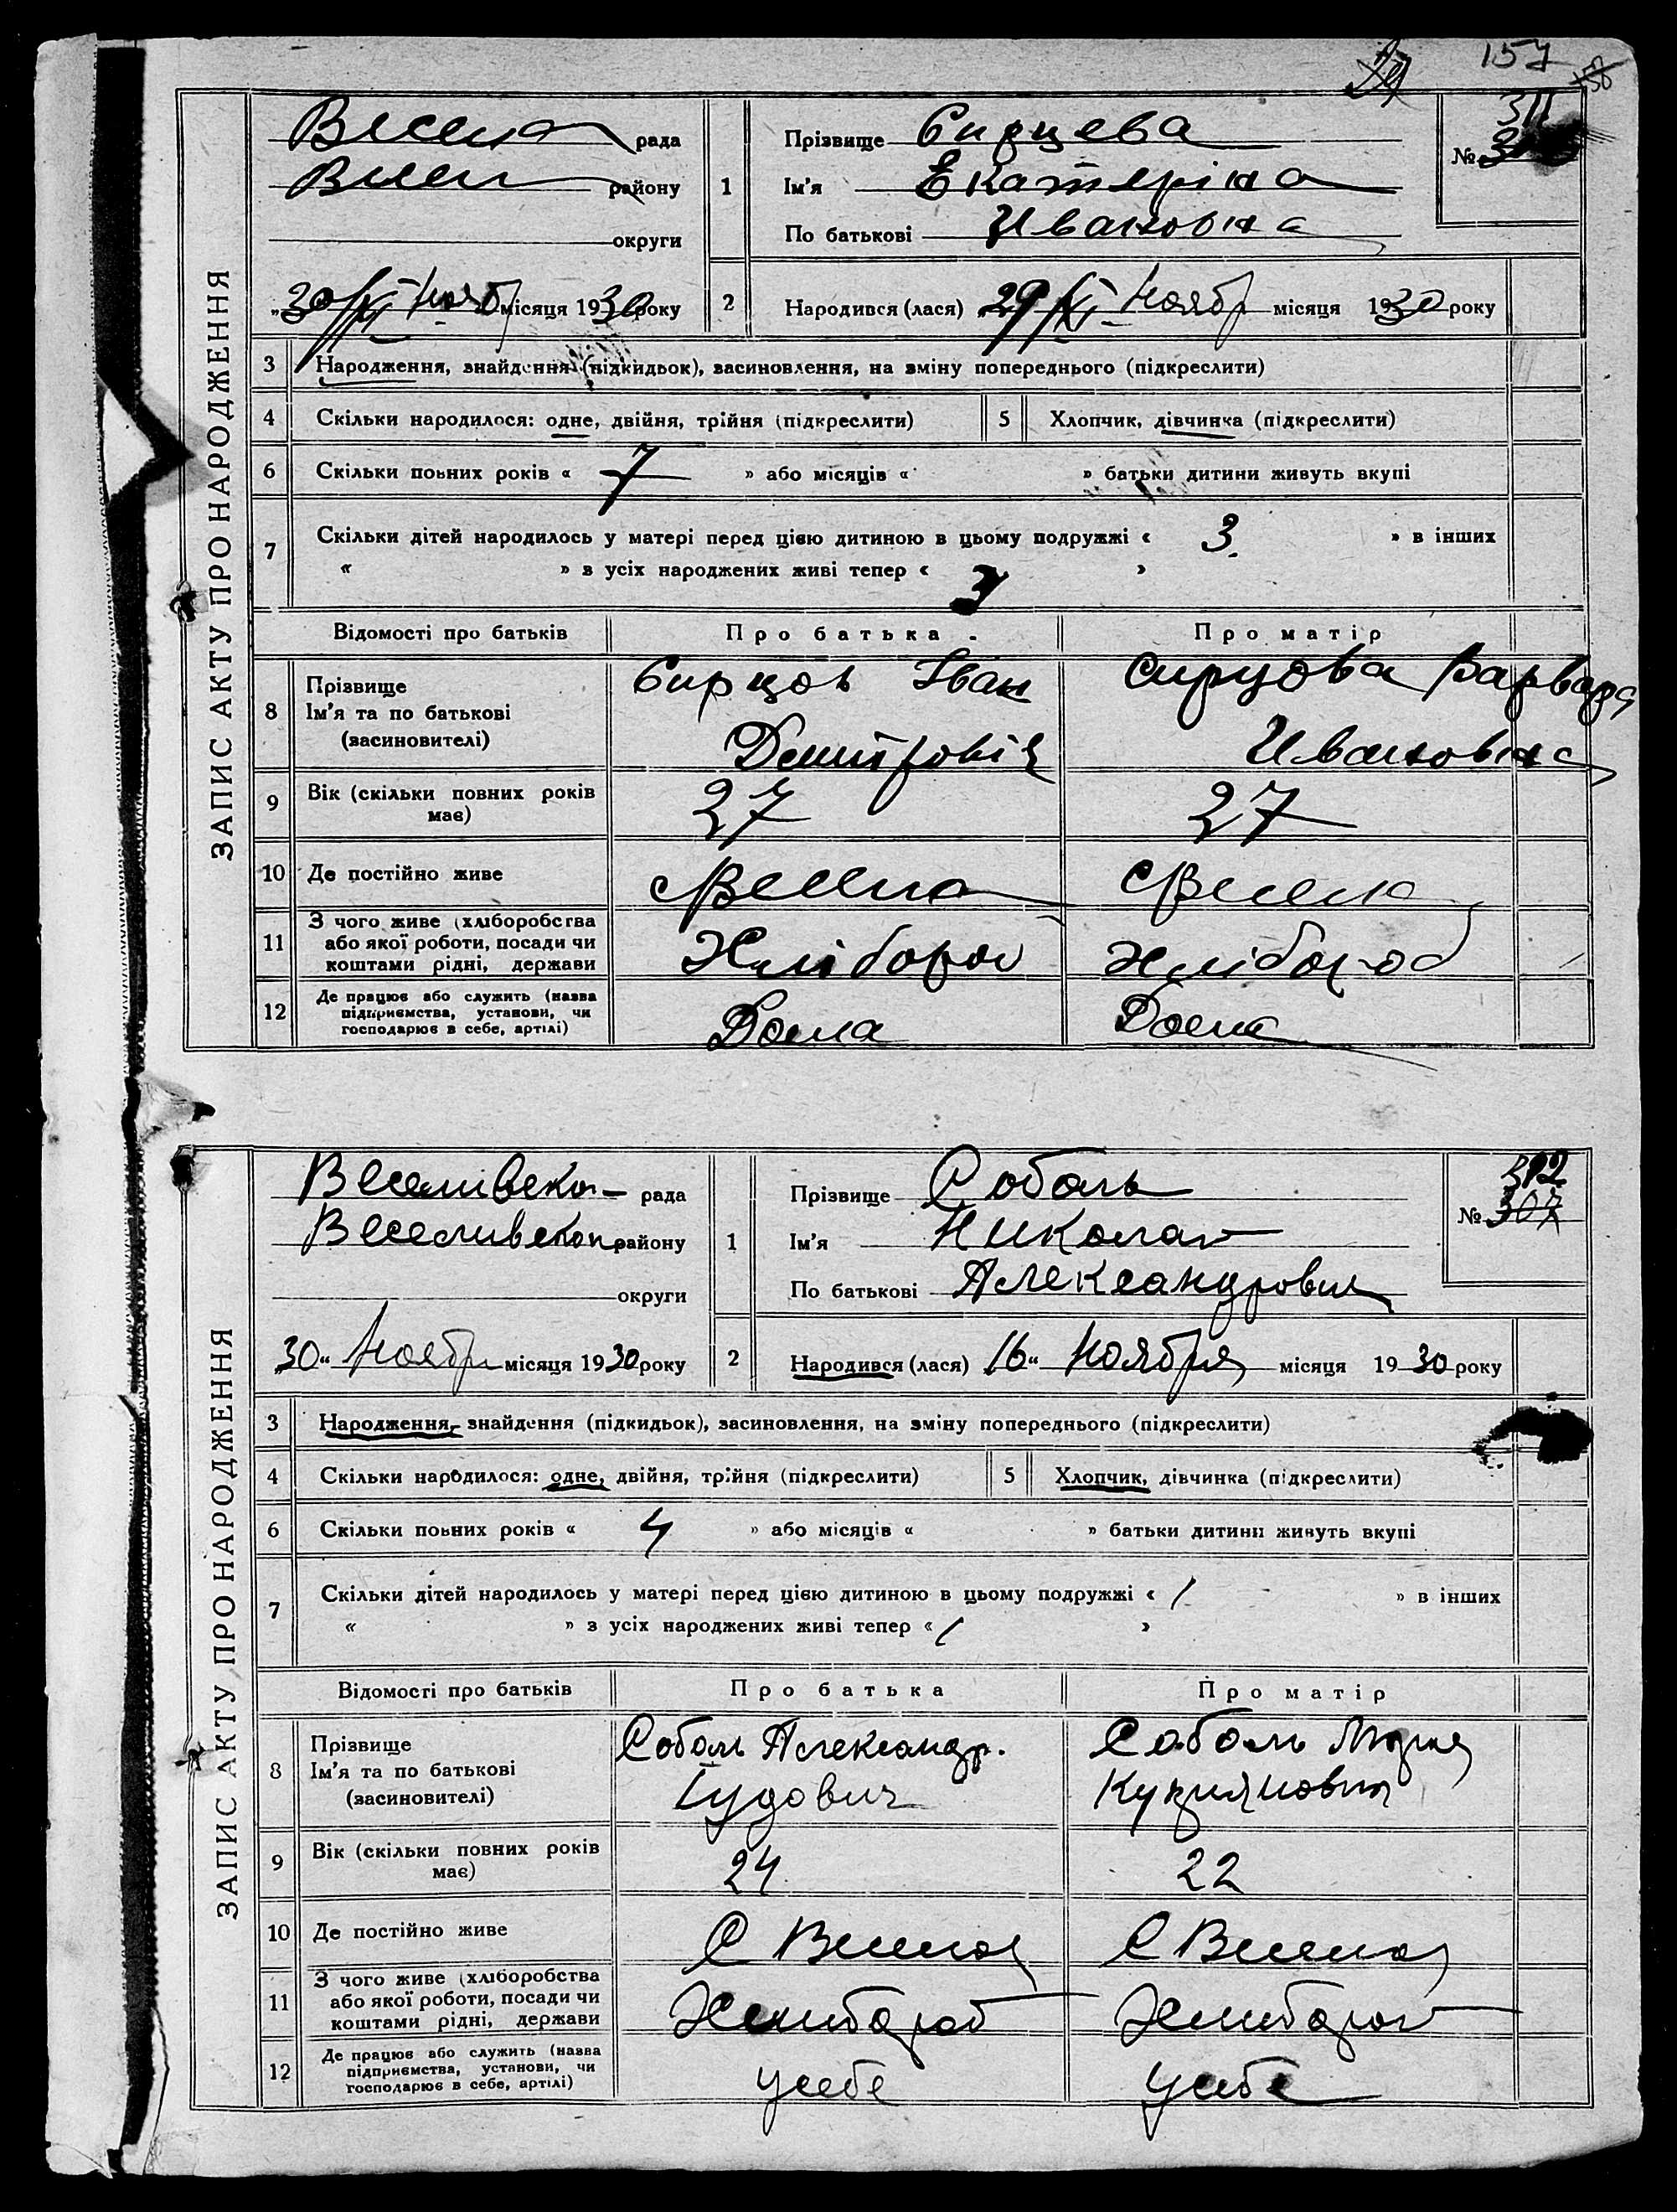 157
ЗАПИС АКТУ ПРО НАРОДЖЕННЯ
Весела рада
району
округи
30/XI Нояб місяця 1930 року
1
Прізвище Сирцева
Ім'я Екатеріна
По батькові Ивановна
№ 311
2
Народився (лася) 29/XI Ноябр місяця 1930 року
3 Народження, знайдення (підкидьок), засиновлення, на зміну попереднього (підкреслити)
4 Скільки народилося: одне, двійня, трійня (підкреслити)
5 Хлопчик, дівчинка (підкреслити)
6 Скільки повних років « 7 » або місяців « » батьки дитини живуть вкупі
7 Скільки дітей народилось у матері перед цією дитиною в цьому подружжі « 3 » в інших
« » з усіх народжених живі тепер « 3 »
Відомості про батьків Про батька Про матір
8 Прізвище
Ім'я та по батькові
(засиновителі)
Сирцов Іван
Дмитровіч
Сирцова Варвара
Ивановна
9 Вік (скільки повних років
має)
27 27
10 Де постійно живе
с Весела с Весела
11 З чого живе (хліборобства
або якої роботи, посади чи
коштами рідні, держави
Хлібороб Хлібороб
12 Де працює або служить (назва
підприємства, установи, чи
господарює в себе, артілі)
Дома Дома
ЗАПИС АКТУ ПРО НАРОДЖЕННЯ
Веселивска рада
Веселивскоп району
округи
30 „ Ноября місяця 1930 року
1
Прізвище Соболь
Ім'я Николай
По батькові Александрович
№ 312
307
2
Народився (лася) 16 „ Ноября місяця 1930 року
3 Народження, знайдення (підкидьок), засиновлення, на зміну попереднього (підкреслити)
4 Скільки народилося: одне, двійня, трійня (підкреслити)
5 Хлопчик, дівчинка (підкреслити)
6 Скільки повних років « 4 » або місяців « » батьки дитини живуть вкупі
7 Скільки дітей народилось у матері перед цією дитиною в цьому подружжі « 1 » в інших
« » з усіх народжених живі тепер « 1 »
Відомості про батьків Про батька Про матір
8 Прізвище
Ім'я та по батькові
(засиновителі)
Соболь Александр.
Іудович
Соболь Мария
Куприяновна
9 Вік (скільки повних років
має)
24 22
10 Де постійно живе
С Веселоя С Веселоя
11 З чого живе (хліборобства
або якої роботи, посади чи
коштами рідні, держави
Хлибороб Хлибороб
12 Де працює або служить (назва
підприємства, установи, чи
господарює в себе, артілі)
у себе у себе